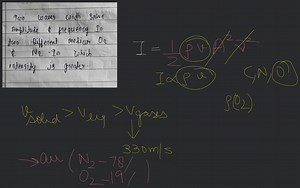 Two waves with same
Amplitude & frequency in
two different medium O₂
& N₂. In which
intensity is greater.
I = 1/2 ρ v A² ω²
I ∝ ρ v
C, N, O
ρ(O₂)
v solid > v liq > v gases
330 m/s
→ air ( N₂ - 78 %
O₂ - 19 %